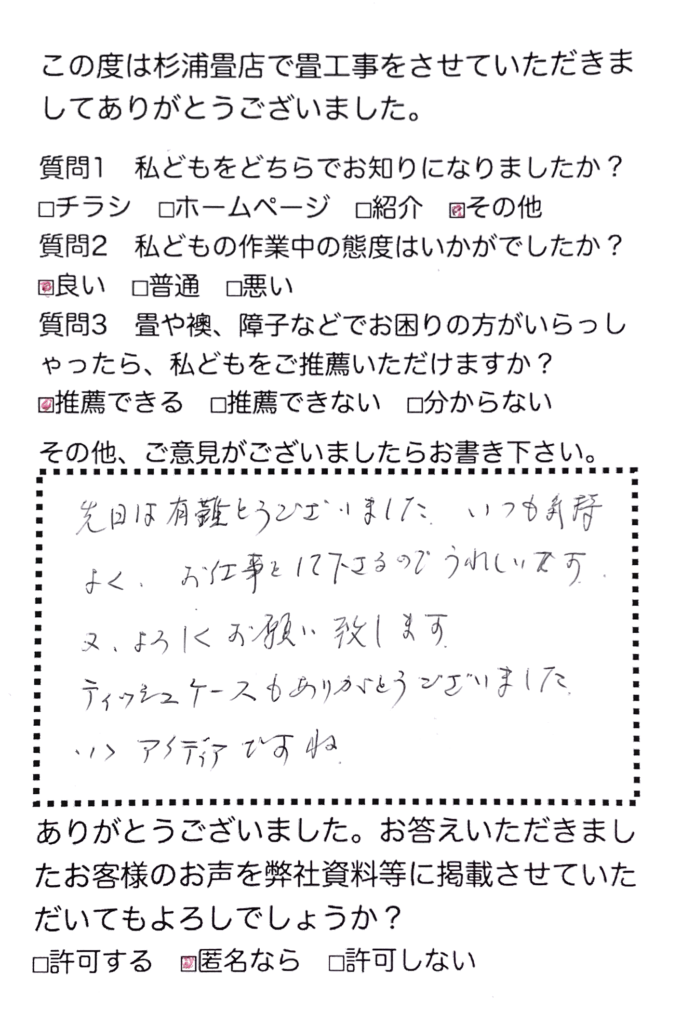 この度は杉浦畳店で畳工事をさせていただきま
してありがとうございました。
質問1 私どもをどちらでお知りになりましたか？
□チラシ □ホームページ □紹介 ☑その他
質問2 私どもの作業中の態度はいかがでしたか？
☑良い □普通 □悪い
質問3 畳や襖、障子などでお困りの方がいらっし
ゃったら、私どもをご推薦いただけますか？
☑推薦できる □推薦できない □分からない
その他、ご意見がございましたらお書き下さい。
先日は有難とうございました。いつも気持
よく、お仕事をして下さるのでうれしいです。
又、よろしくお願い致します
ティッシュケースもありがとうございました。
いいアイディアですね。
ありがとうございました。お答えいただきまし
たお客様のお声を弊社資料等に掲載させていた
だいてもよろしでしょうか？
□許可する ☑匿名なら □許可しない